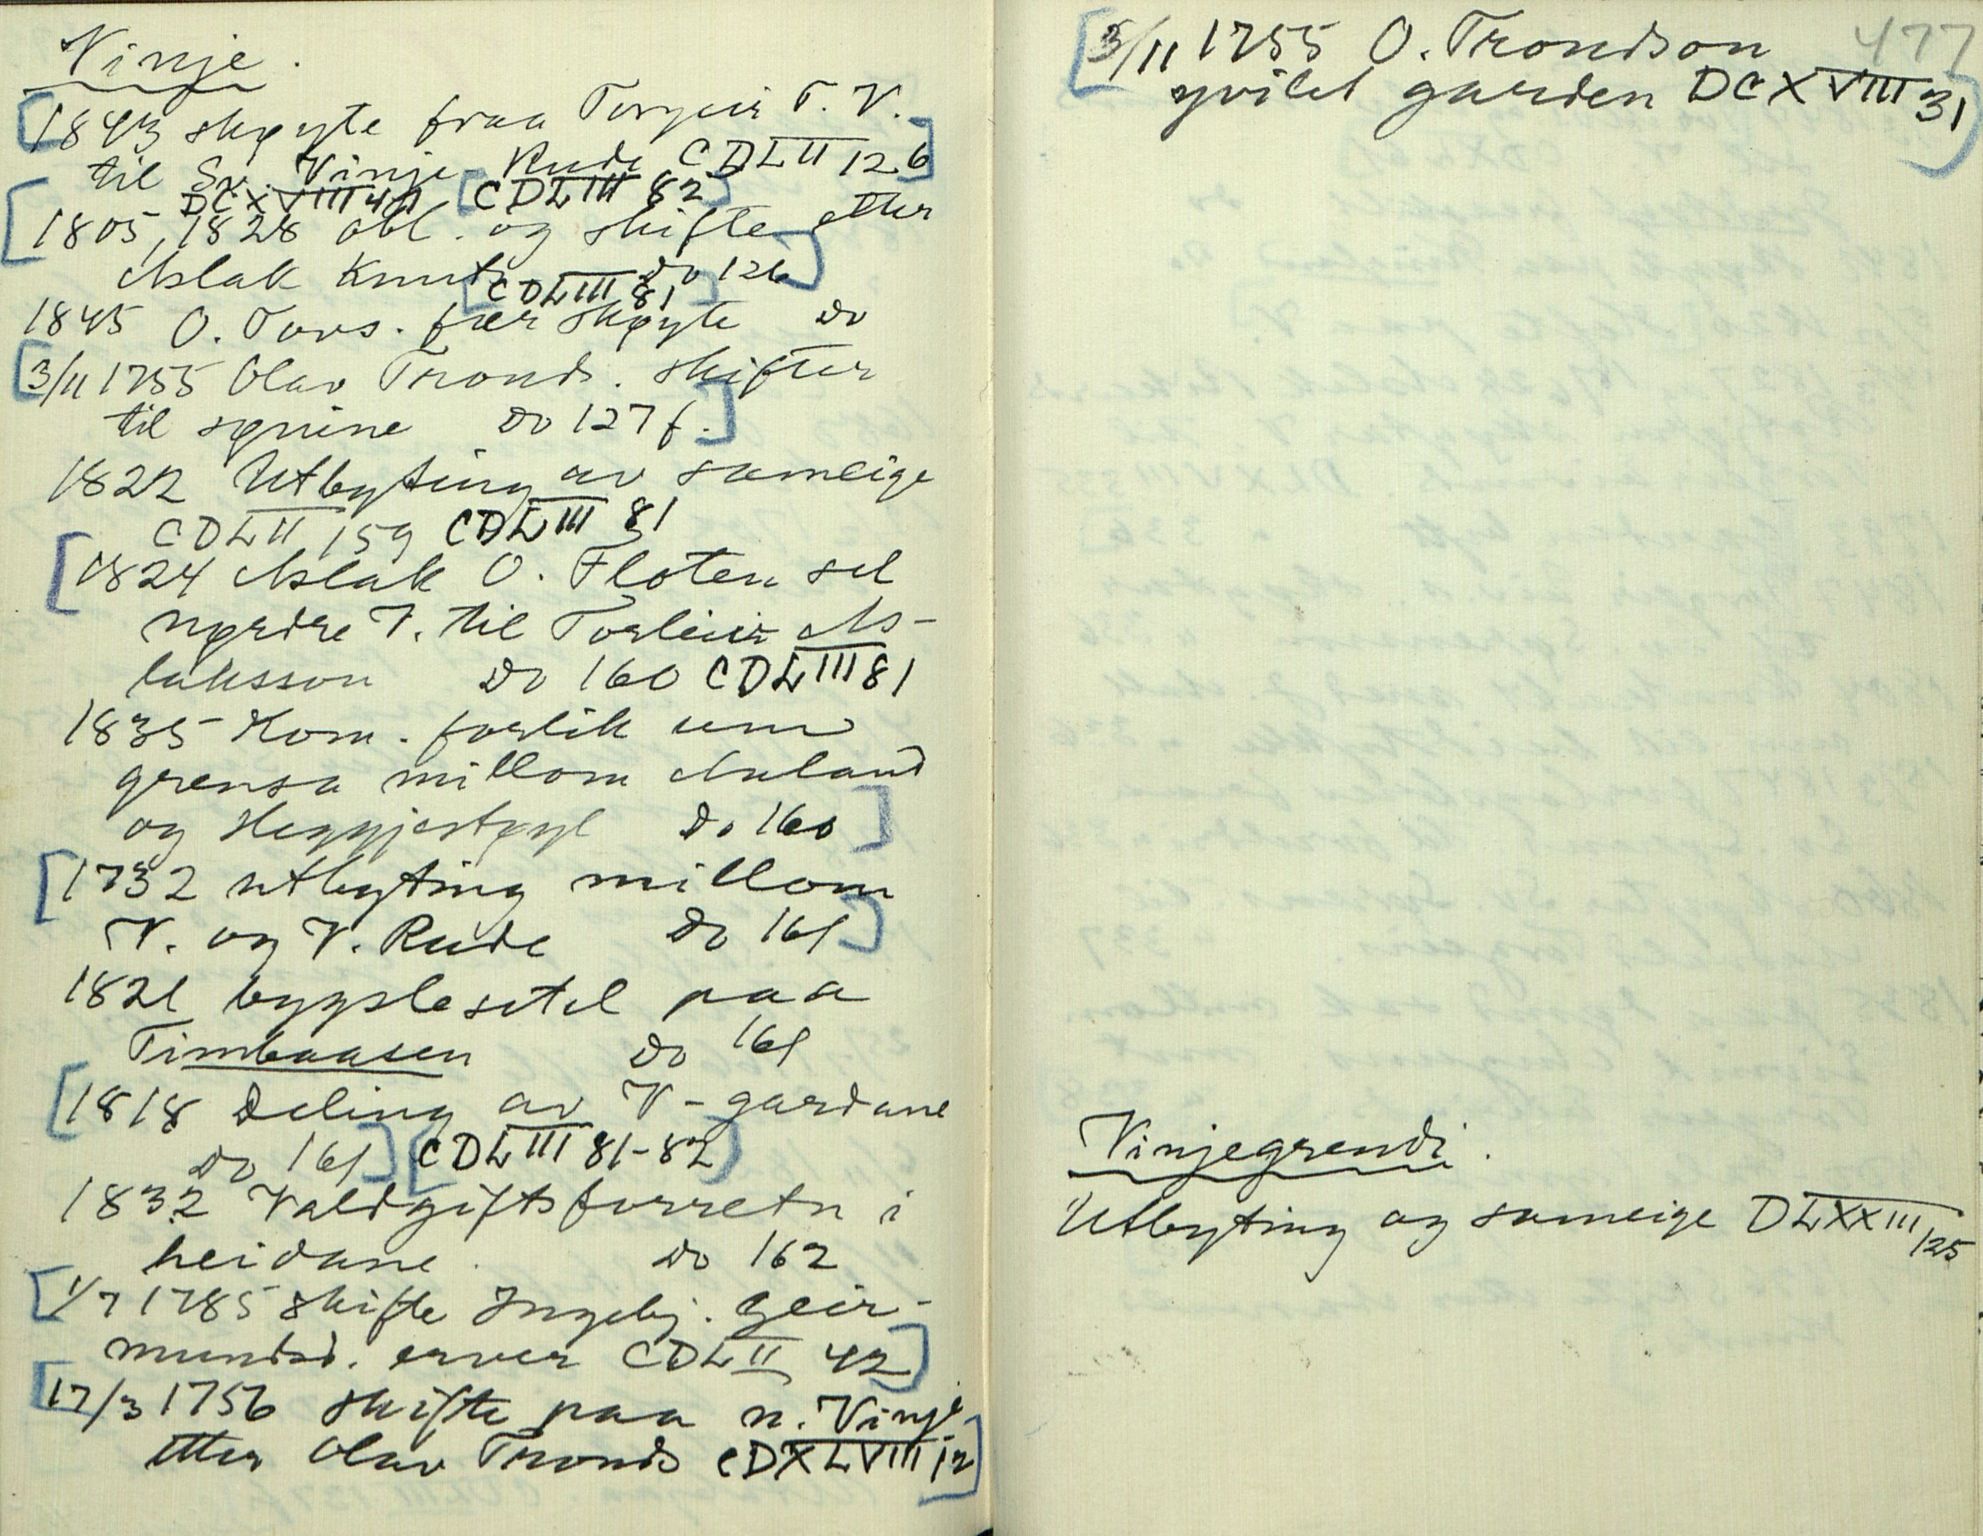 Vinje.
[1843 skøyte fraa Torgeir T. V.
til Sv. Vinje Rude CDLII 126]
DCXVIII 40 [CDLIII 82]
[1805, 1828 obl. og skifte etter
Aslak Knuts do 126]
[CDLIII 81]
1845 O. Tovs. fær skøyte do
[3/11 1755 Olav Tronds. skifter
til sønine do 127 f.]
1822 Utbyting av sameige
CDLII 159 CDLIII 81
[1824 Aslak O. Floten sel
nørdre V. til Torleiv As-
laksson do 160 CDLIII 81
1835 Kom. forlik um
grensa millom Auland
og Heggjestøyl do 160]
[1732 utbyting millom
V. og V. Rude do 161]
1821 bygslesetel paa
Timbaasen do 161
[1818 Deling av V-gardane
do 161] [CDLIII 81-82]
1832 Valdgiftsforretn i
heidane do 162
[1/7 1785 skifte Ingebj. Geir-
mundsd. erver CDLII 42]
[17/3 1756 skifte paa n. Vinje
etter Olav Tronds CDXLVIII 12]
477
[3/11 1755 O. Trondson
garden DCXVIII 31]
Vinjegrendi.
Utbyting og sameige DLXXIII 125